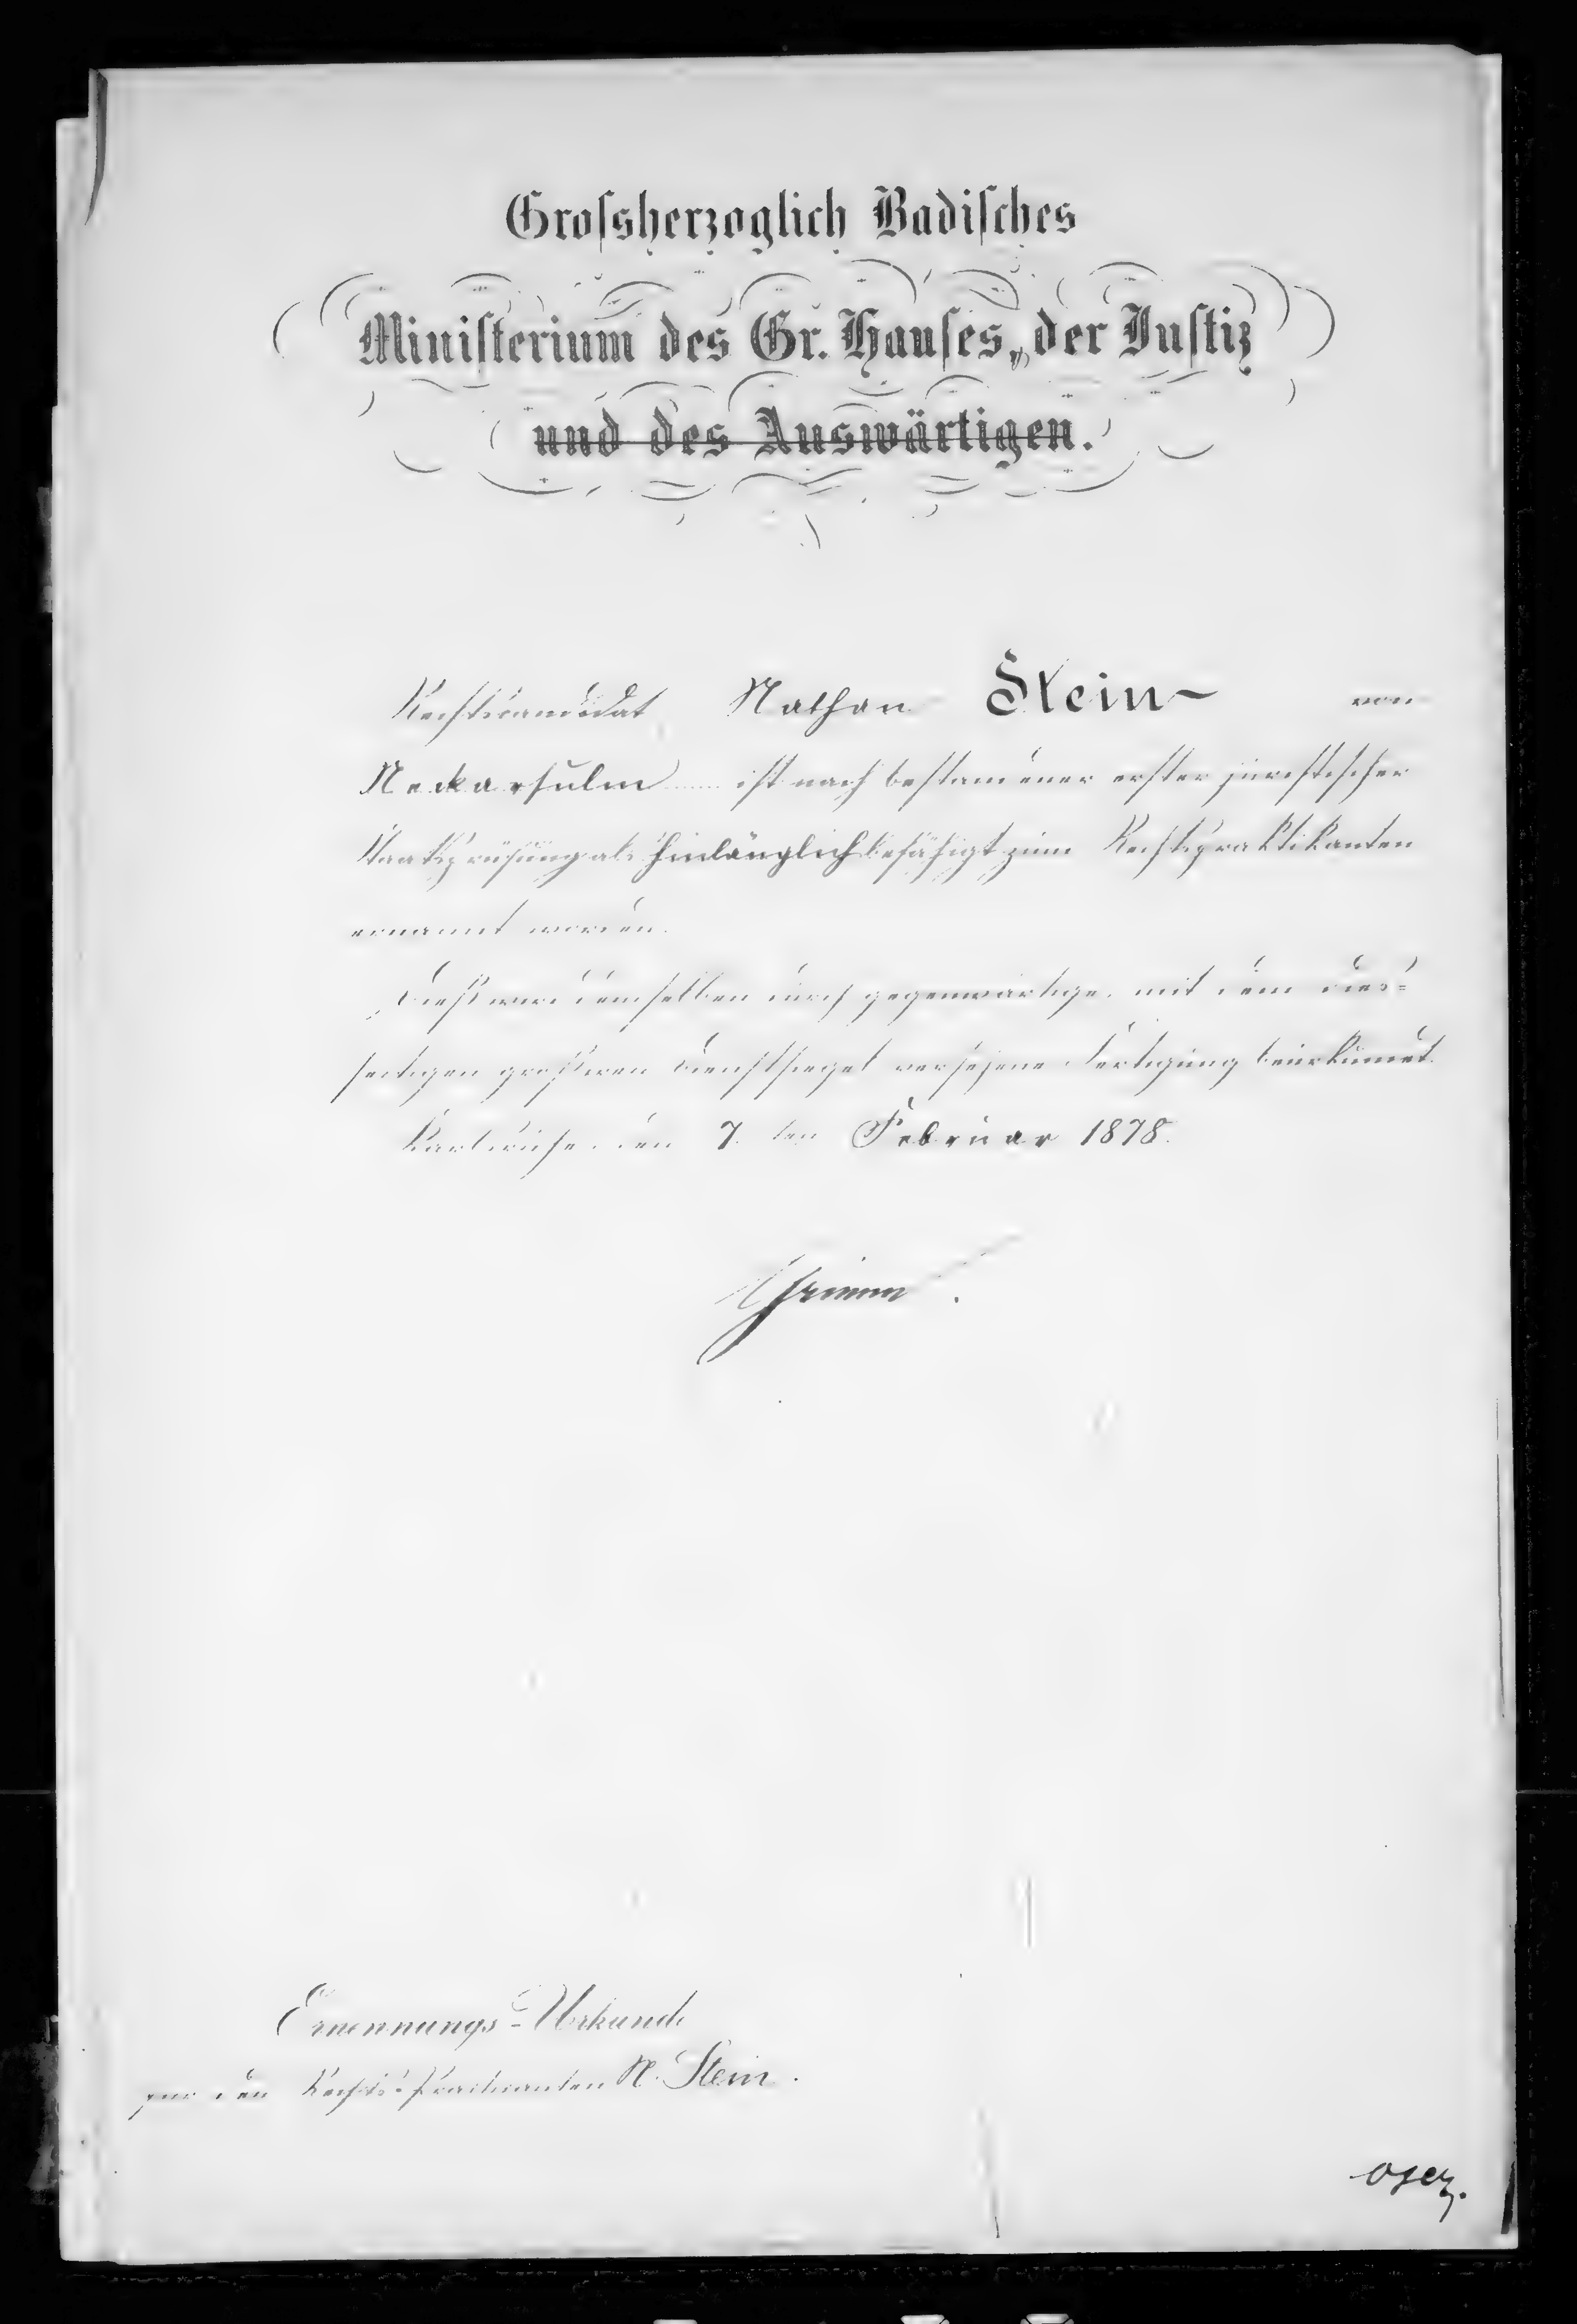 Grossherzoglich Badisches
Ministerium des Gr. Hauses, der Justiz
und des Auswärtigen.
Rechtscandidat Nathan Stein von
Neckarsulm ist nach bestandener erster juristischer
Staatsprüfung als hinlänglich befähigt zum Rechtspraktikanten
ernannt worden.
Dieß wird demselben durch gegenwärtige, mit dem dies-
seitigen größeren Dienstsiegel versehene Fertigung beurkundet.
Karlsruhe, den 7. ten Februar 1878.
Grimm.
Ernennungs-Urkunde
für den Rechts-Practicanten N. Stein.